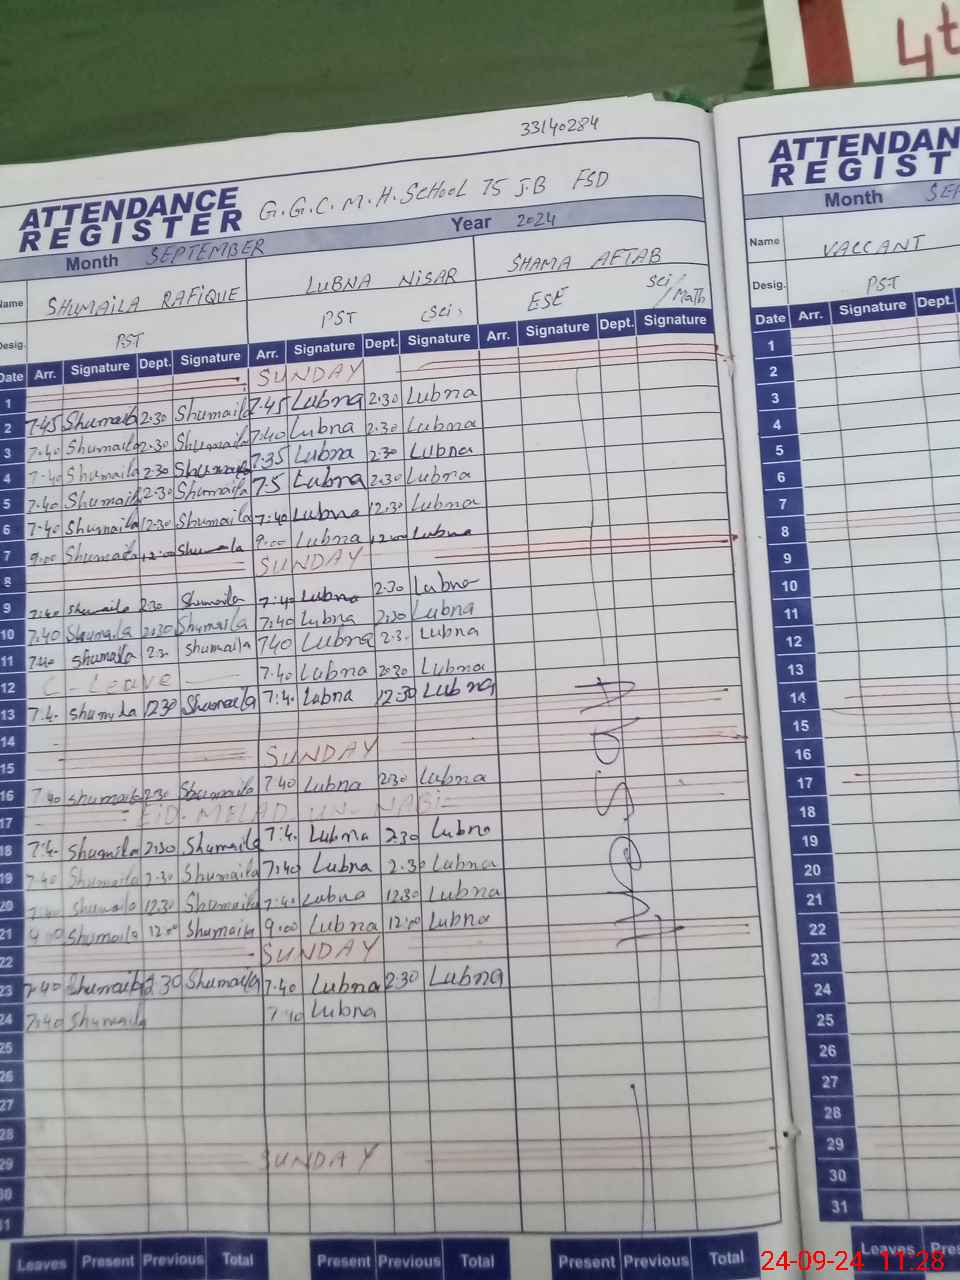 4t
33140284
ATTENDANCE REGISTER G.G.C.M.H. SCHOOL 75 J.B FSD
Month SEPTEMBER Year 2024
Name SHUMAILA RAFIQUE LUBNA NISAR SHAMA AFTAB
Desig. PST PST (Sci, ESE Sci/Math
Date Arr. Signature Dept. Signature Arr. Signature Dept. Signature Arr. Signature Dept. Signature
1 SUNDAY
2 7.45 Shumaila 2.30 Shumaila 7.45 Lubna 2.30 Lubna
3 7.40 Shumaila 2.30 Shumaila 7.40 Lubna 2.30 Lubna
4 7.40 Shumaila 2.30 Shumaila 7.35 Lubna 2.30 Lubna
5 7.40 Shumaila 2.30 Shumaila 7.5 Lubna 2.30 Lubna
6 7.40 Shumaila 12.30 Shumaila 7:40 Lubna 12.30 Lubna
7 9:00 Shumaila 12:00 Shumaila 9:00 Lubna 12:00 Lubna
8 SUNDAY
9 7:40 Shumaila 2:30 Shumaila 7:40 Lubna 2:30 Lubna
10 7:40 Shumaila 2:30 Shumaila 7:40 Lubna 2:30 Lubna
11 7:40 Shumaila 2.3. Shumaila 740 Lubna 2.3. Lubna
12 C-Leave 7.40 Lubna 2030 Lubna
13 7:4. Shumaila 1230 Shumaila 7:4. Lubna 12.30 Lubna
14
15 SUNDAY
16 7.40 Shumaila 2.30 Shumaila 7 40 Lubna 2:30 Lubna
17 EID. MELAD UN. NABI
18 7:4. Shumaila 2:30 Shumaila 7:4. Lubna 2.30 Lubna
19 7:40 Shumaila 2.30 Shumaila 7:40 Lubna 2.30 Lubna
20 7:40 Shumaila 12.30 Shumaila 7:40 Lubna 12.30 Lubna
21 9:00 Shumaila 12:00 Shumaila 9:00 Lubna 12:00 Lubna
22 SUNDAY
23 7.40 Shumaila 2.30 Shumaila 7.40 Lubna 2:30 Lubna
24 7:40 Shumaila 7:40 Lubna
25
26
27
28
29 SUNDAY
30
31
Leaves Present Previous Total Present Previous Total Present Previous Total
ATTENDAN
REGIST
Month SEP
Name VACCANT
Desig. PST
Date Arr. Signature Dept.
1
2
3
4
5
6
7
8
9
10
11
12
13
14
15
16
17
18
19
20
21
22
23
24
25
26
27
28
29
30
31
Leaves Present
24-09-24 11:28